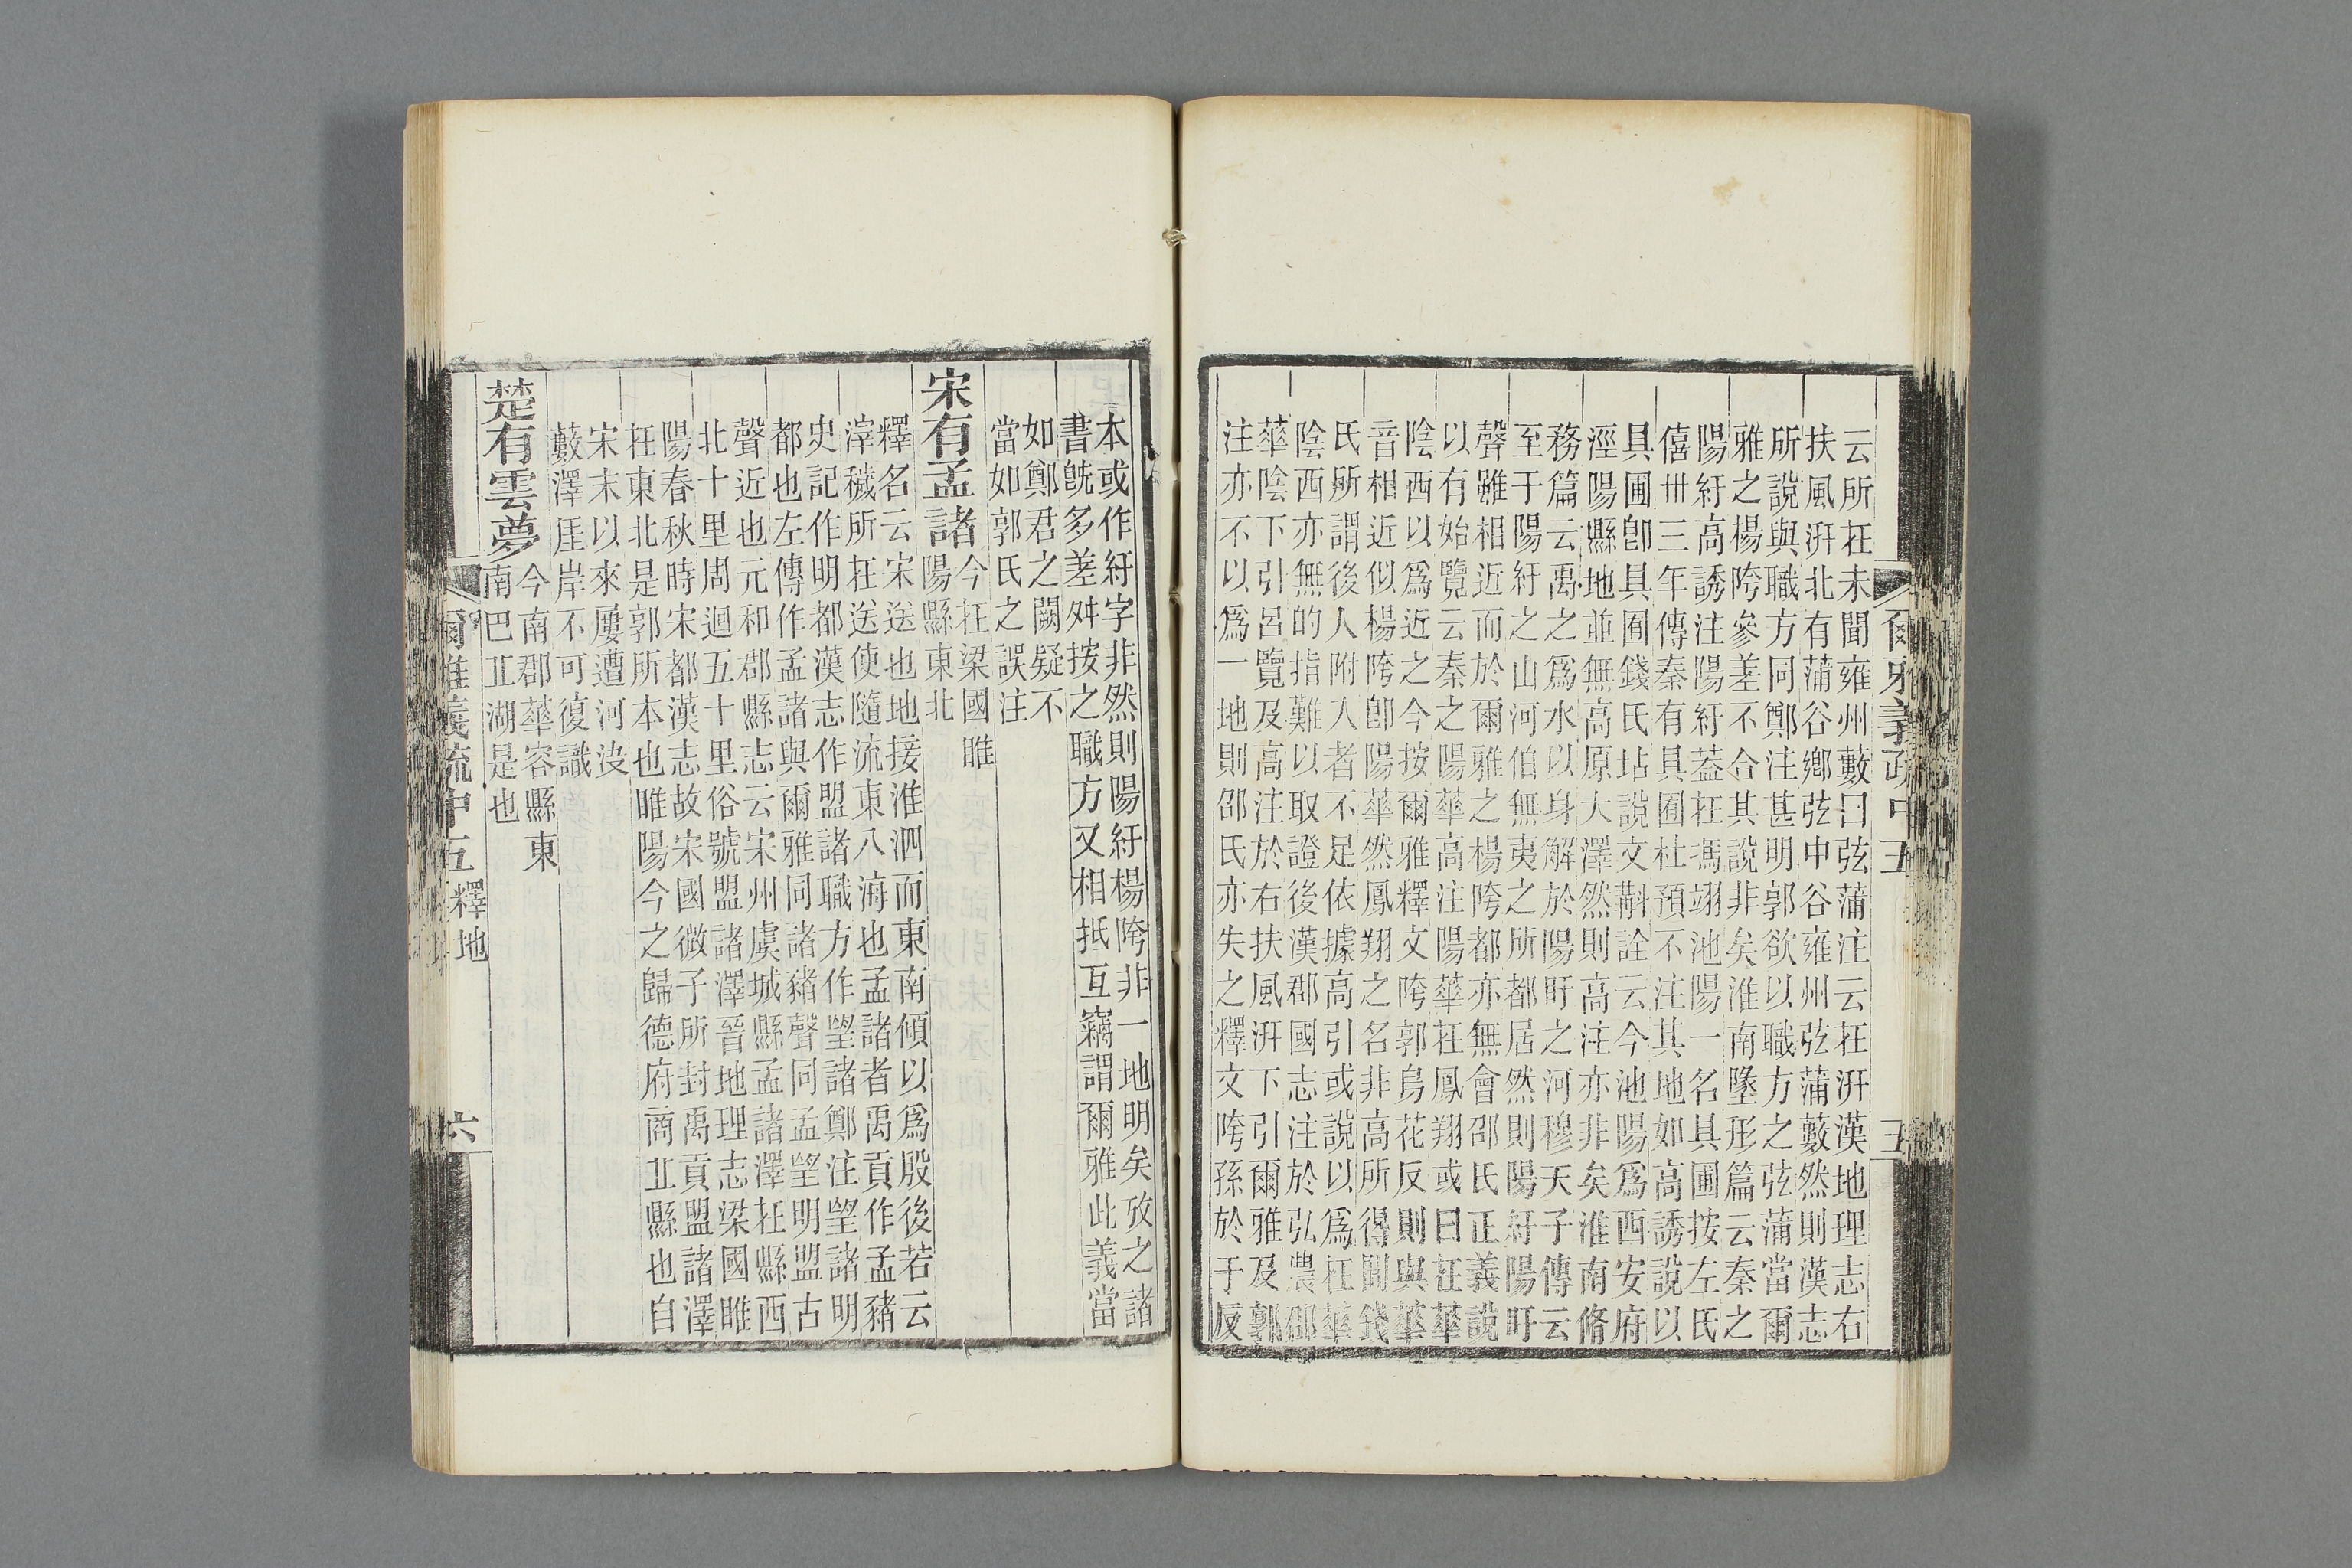 爾雅義疏中五
五
云所在未聞雍州藪曰弦蒲注云在汧漢地理志右
扶風汧北有蒲谷鄉弦中谷雍州弦蒲藪然則漢志
所說與職方同鄭注甚明郭欲以職方之弦蒲當爾
雅之楊陓參差不合其說非矣淮南墬形篇云秦之
陽紆高誘注陽紆蓋在馮翊池陽一名具圃按左氏
僖卅三年傳秦有具囿杜預不注其地如高誘說以
具圃卽具囿錢氏坫說文斠詮云今池陽爲西安府
涇陽縣地並無高原大澤然則高注亦非矣淮南脩
務篇云禹之爲水以身解於陽盱之河穆天子傳云
至于陽紆之山河伯無夷之所都居然則陽紆陽盱
聲雖相近而於爾雅之楊陓都亦無會邵氏正義說
以有始覽云秦之陽華高注陽華在鳳翔或曰在華
陰西以爲近之今按爾雅釋文陓郭烏花反則與華
音相近似楊陓卽陽華然鳳翔之名非高所得聞錢
氏所謂後人附入者不足依據高引或說以爲在華
陰西亦無的指難以取證後漢郡國志注於弘農邵
華陰下引呂覽及高注於右扶風汧下引爾雅及郭
注亦不以爲一地則邵氏亦失之釋文陓孫於于反
本或作紆字非然則陽紆楊陓非一地明矣攷之諸
書旣多差舛按之職方又相抵互竊謂爾雅此義當
如鄭君之闕疑不
當如郭氏之誤注
宋有孟諸
今在梁國睢
陽縣東北
釋名云宋送也地接淮泗而東南傾以爲殷後若云
滓穢所在送使隨流東八海也孟諸者禹貢作孟豬
史記作明都漢志作盟諸職方作望諸鄭注望諸明
都也左傳作孟諸與爾雅同諸豬聲同孟望明盟古
聲近也元和郡縣志云宋州虞城縣孟諸澤在縣西
北十里周迴五十里俗號盟諸澤晉地理志梁國睢
陽春秋時宋都漢志故宋國微子所封禹貢盟諸澤
在東北是郭所本也睢陽今之歸德府商丘縣也自
宋末以來屢遭河沒
藪澤厓岸不可復識
楚有雲夢
今南郡華容縣東
南巴丘湖是也
爾雅義疏中五 釋地
六